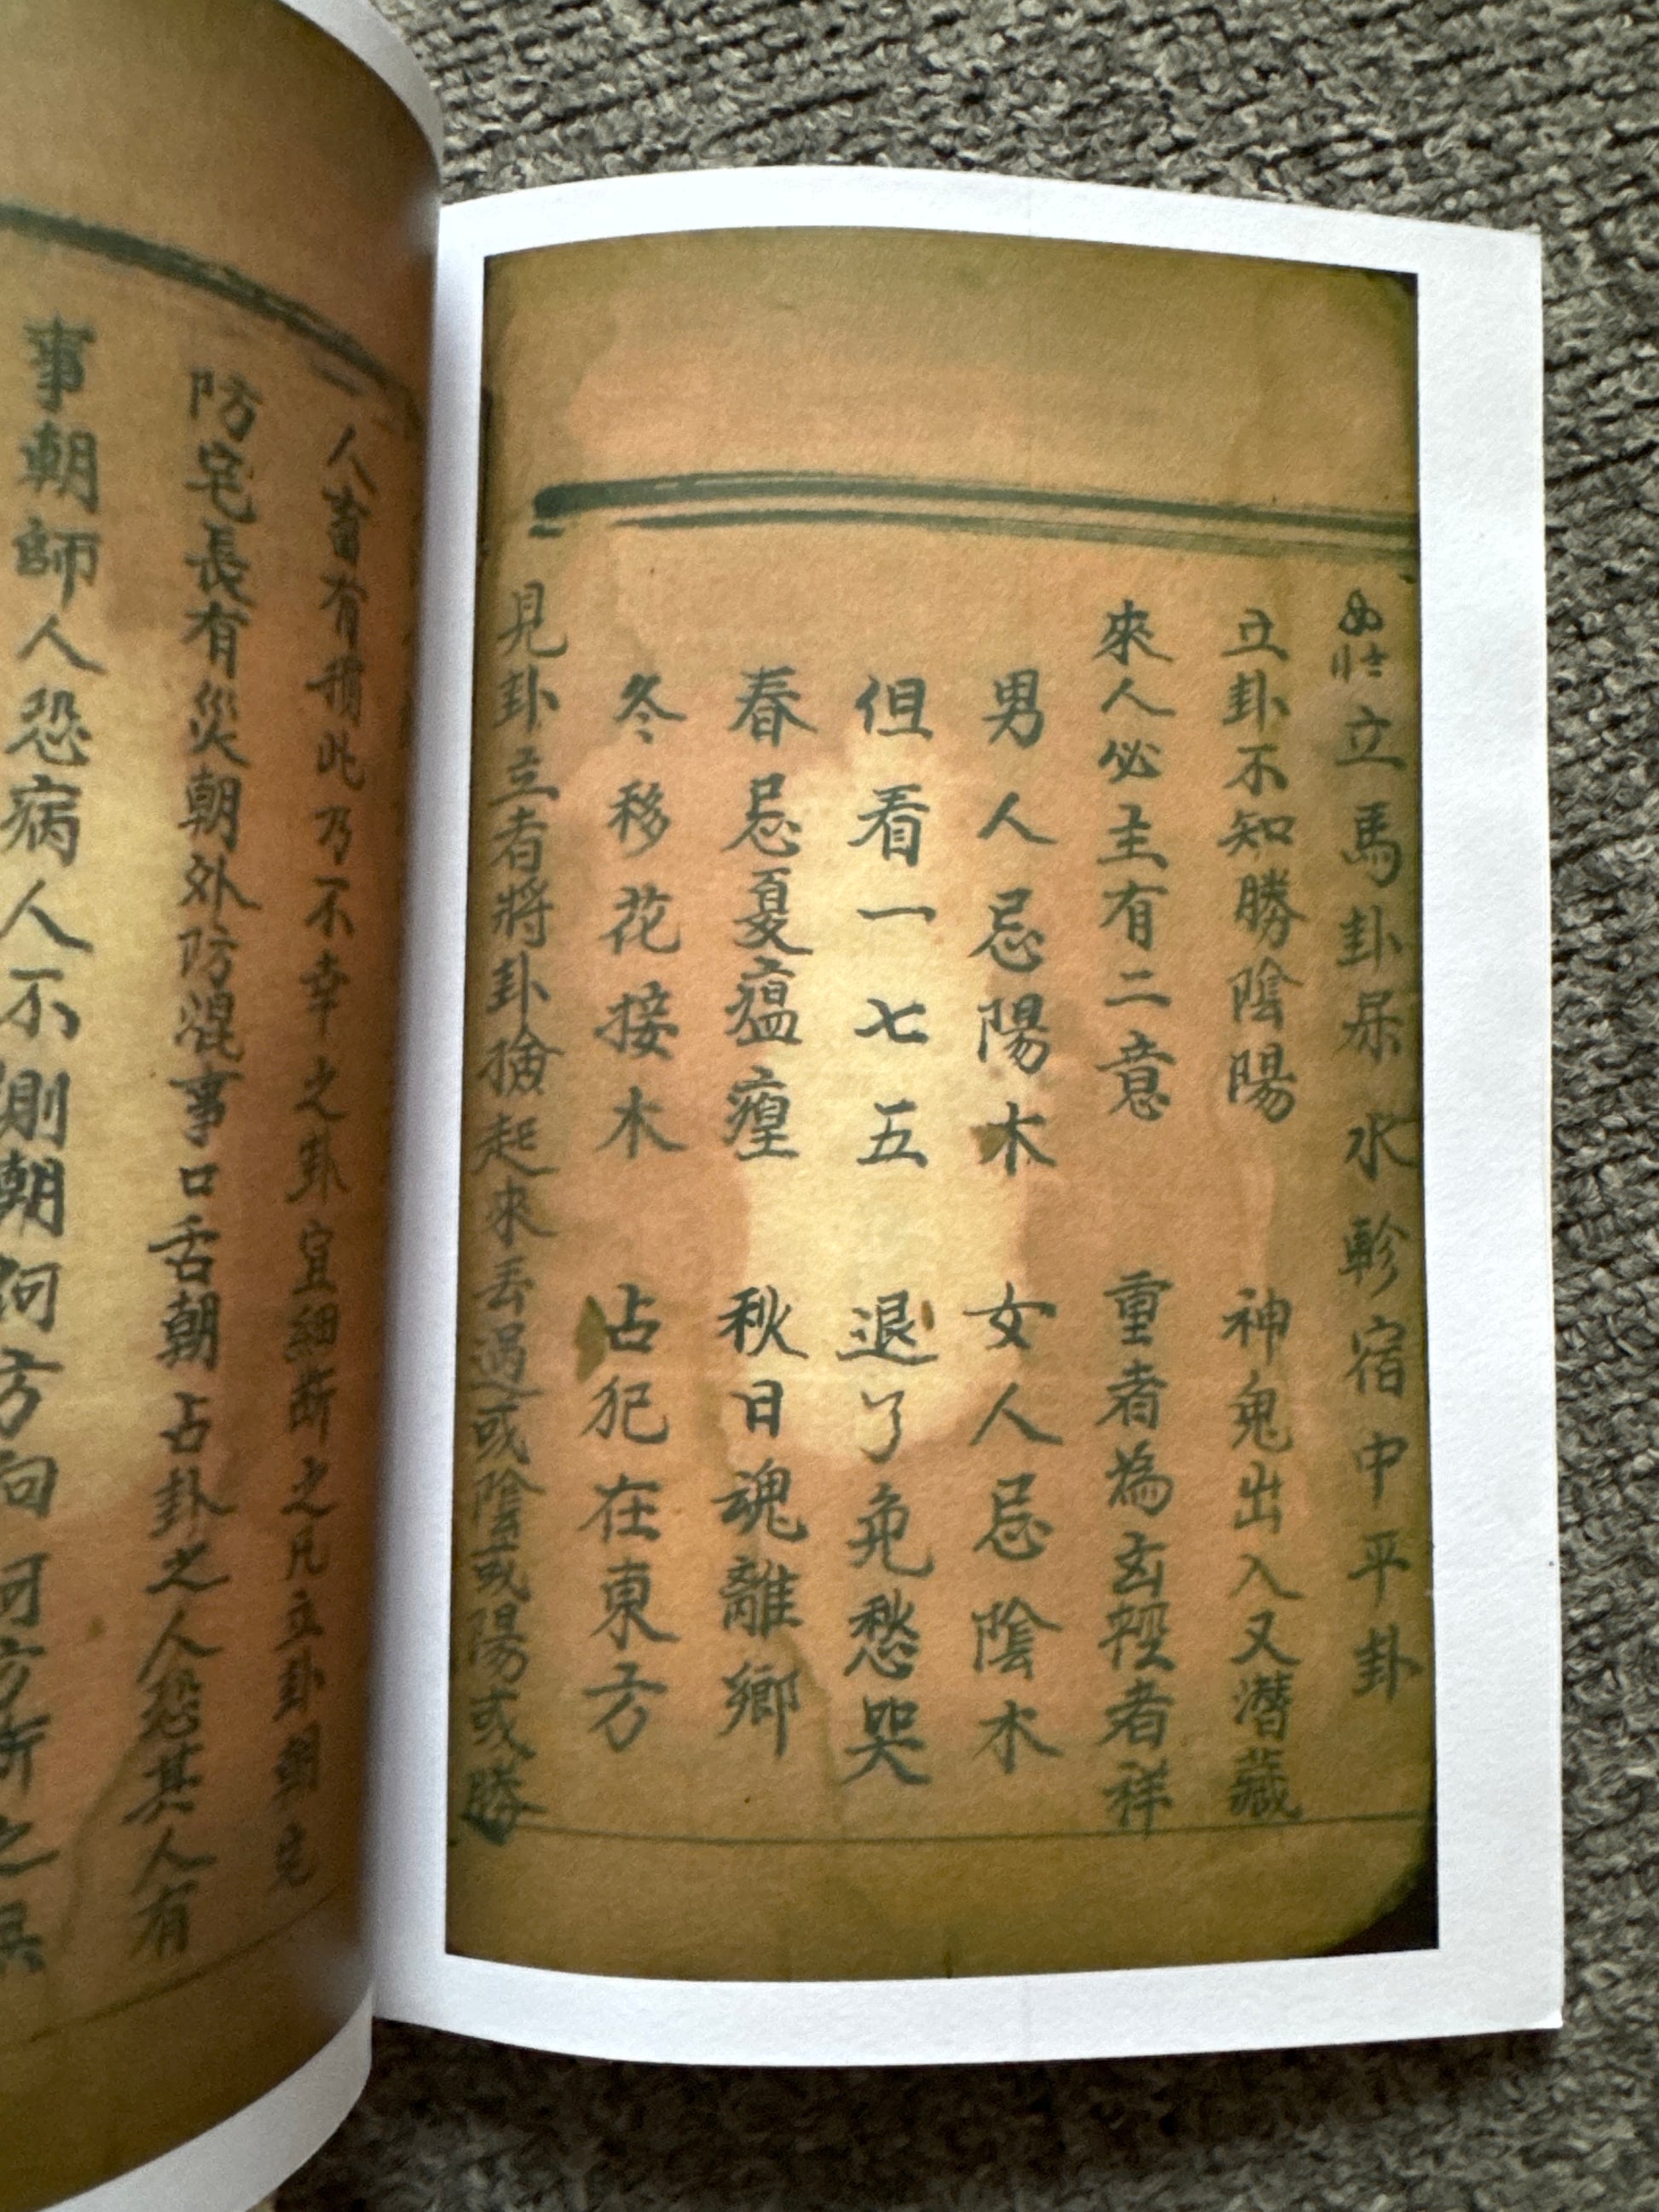 立馬卦屎水軫宿中平卦
立卦不知勝陰陽 神鬼出入又潛藏
來人必主有二意 重者為玄輕者祥
男人忌陽木 女人忌陰木
但看一七五 退了免愁哭
春忌夏瘟瘟 秋日魂離鄉
冬移花接木 占犯在東方
見卦立者將卦撿起來丟過或陰或陽或勝
人畜有損此乃不幸之卦宜細斷之凡立卦朝宅
防宅長有災朝外防混事口舌朝占卦之人恐其人有
事朝師人恐病人不測朝何方向何方斷之